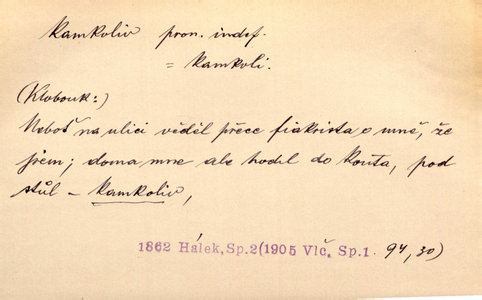 kamkoliv pron. indef.
= kamkoli.
(Klobouk:)
Neboť na ulici věděl přece fiakrista o mně, že
jsem; doma mne ale hodil do kouta, pod
stůl – kamkoliv,
1862 Hálek, Sp.2(1905 Vlč. Sp.1. 94,30)